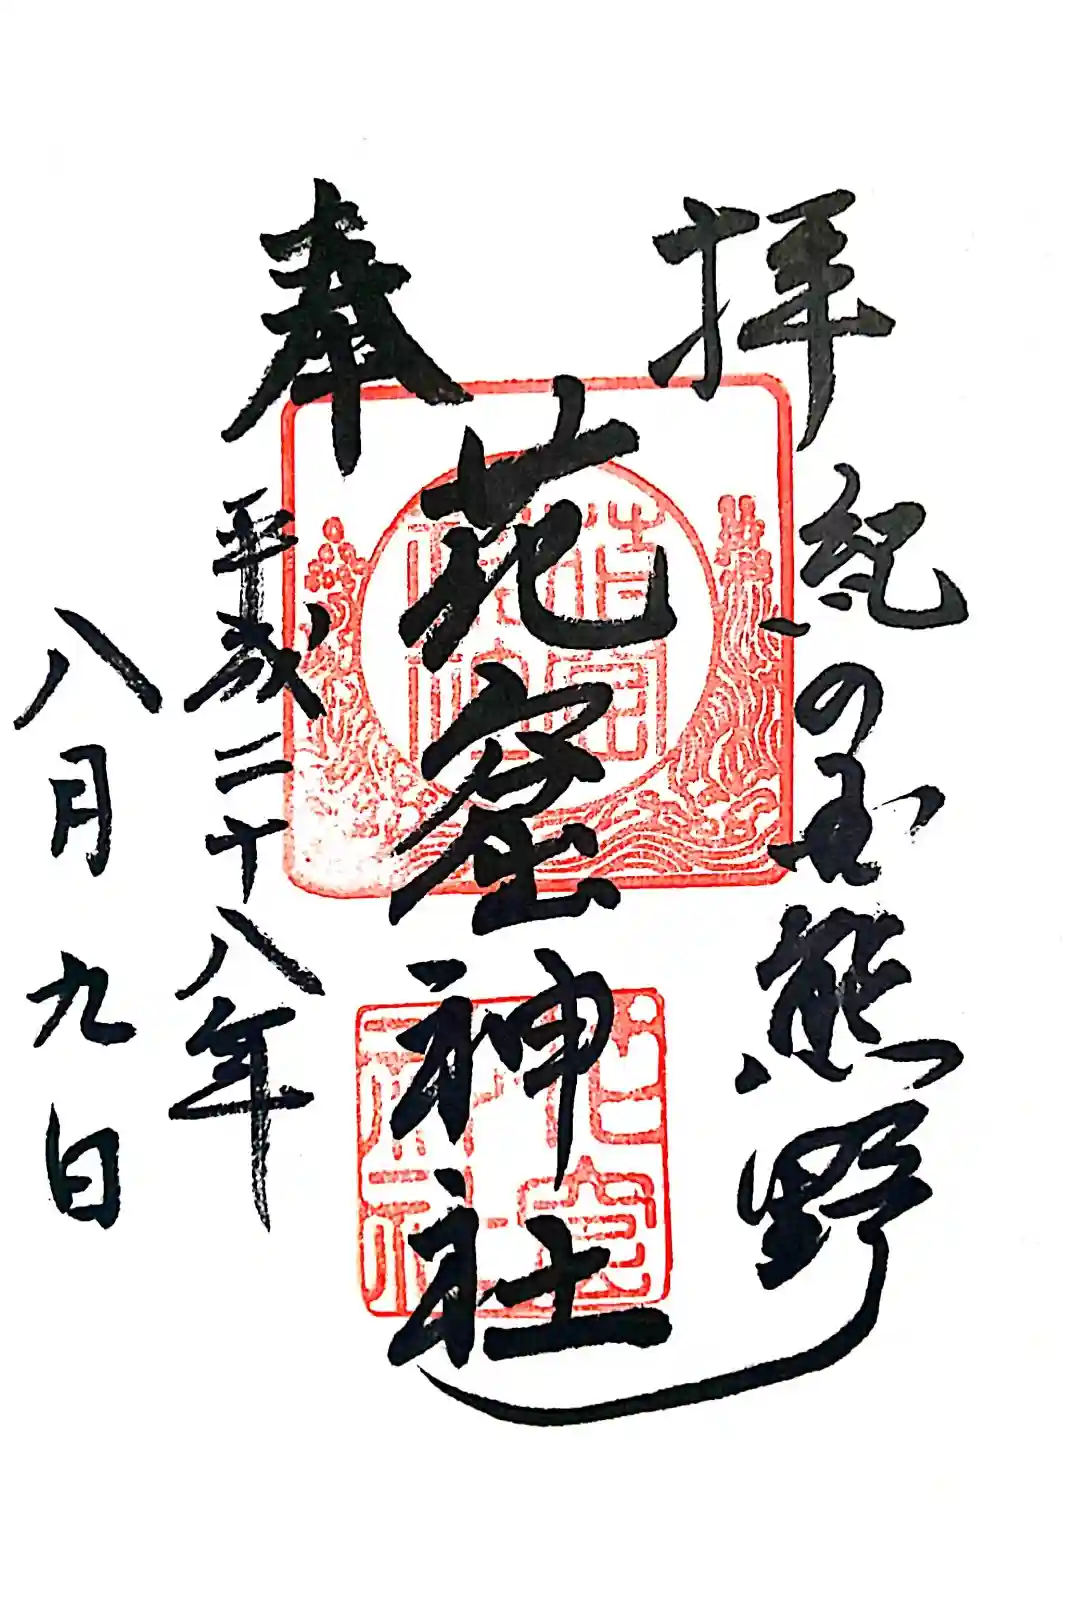 奉拝
紀の国熊野
花窟神社
平成二十八年
八月九日
花窟
神社
花窟
神社